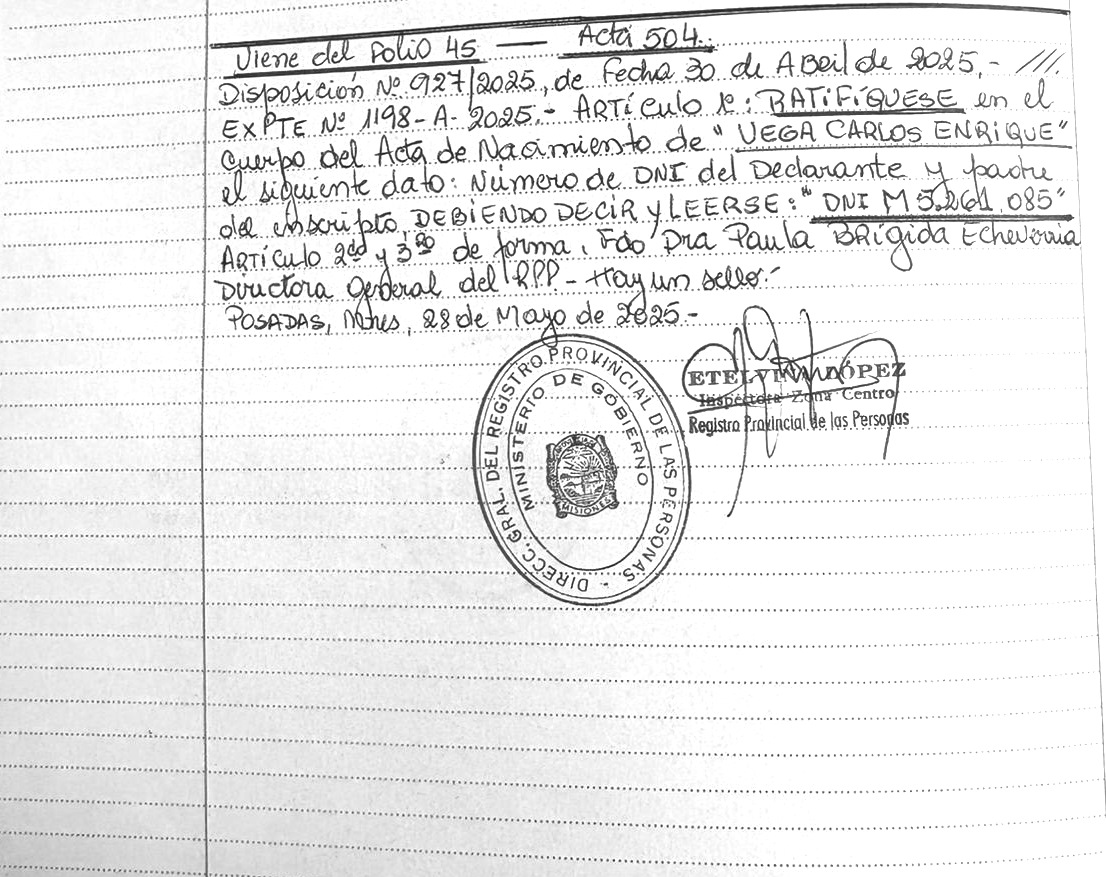 Viene del Folio 45 — Acta 504.
Disposición Nº 927/2025, de Fecha 30 de Abril de 2025,- ///.
EXPTE Nº 1198-A-2025.- ARTÍCULO 1º: RATIFÍQUESE en el
cuerpo del Acta de Nacimiento de "VEGA CARLOS ENRIQUE"
el siguiente dato: Número de DNI del Declarante y padre
del inscripto, DEBIENDO DECIR Y LEERSE: "DNI M 5.261.085"
Artículo 2do y 3ro de forma. Fdo Dra Paula Brígida Echeverria
Directora General del RPP - Hay un sello.-
POSADAS, Mnes, 28 de Mayo de 2025.-
ETELVINA LÓPEZ
Inspectora Zona Centro
Registro Provincial de las Personas
DIRECC. GRAL. DEL REGISTRO PROVINCIAL DE LAS PERSONAS -
MINISTERIO DE GOBIERNO
MISIONES